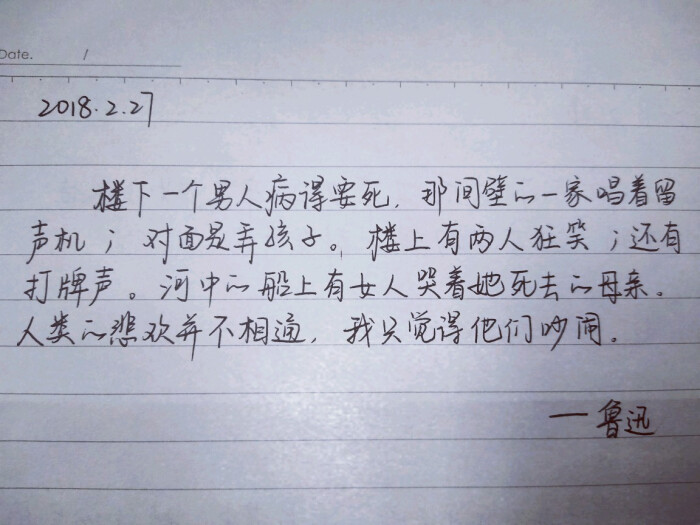 Date. /
2018.2.27
楼下一个男人病得要死，那间壁的一家唱着留
声机；对面是弄孩子。楼上有两人狂笑；还有
打牌声。河中的船上有女人哭着她死去的母亲。
人类的悲欢并不相通，我只觉得他们吵闹。
—鲁迅